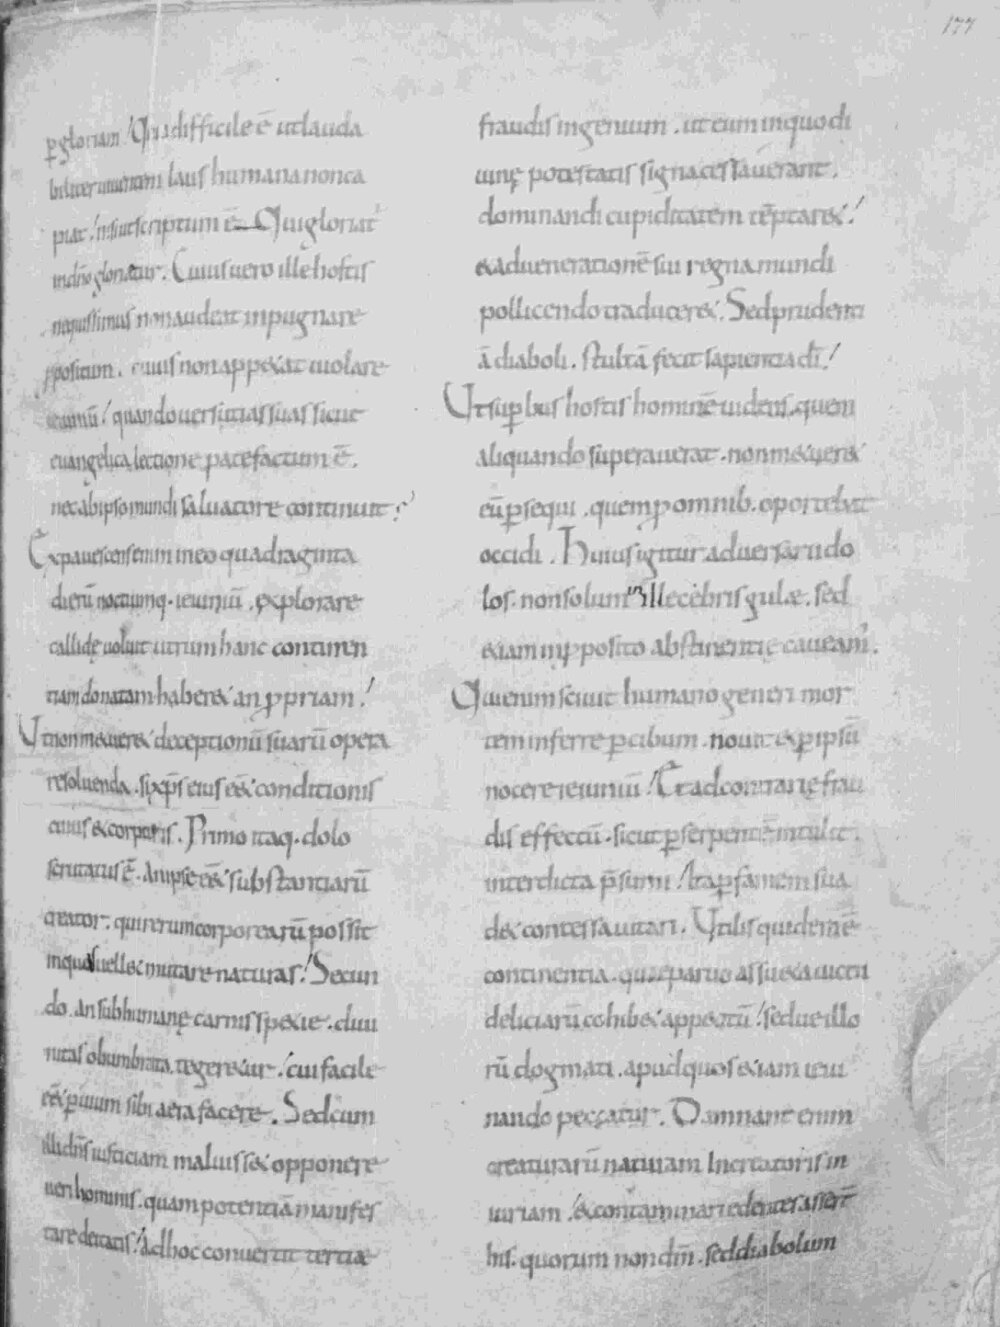 177
ꝑgloriam! Quia difficile ē utlauda
biliter uiuentem laus humana nonca
piat! nisiut scriptum ē Quigloriat᷑
indn̄o glorietur. Cuius uero ille hostis
nequissimus nonaudeat inpugnare
ꝓpositum. cuius nonappetat uiolare
ieiuniū! quando uersutias suas sicut
euangelica lectione patefactum ē.
necabipsomundi saluatore continuit?
Expauescens enim ineo quadraginta
dierū noctiumq. ieiuniū. explorare
callidę uoluit utrum hanc continen
tiam donatam haber& an ꝓpriam!
Utnonmetuer& deceptionū suarū opera
resoluenda. si xp̄s eius ess& conditionis
cuius & corporis. Primo itaq. dolo
scrutatus ē. An ipse ess& substantiarū
creator. qui rerum corporearū possit
inquas uell& mutare naturas! Secun
do. An subhumanę carnis specie. diui
nitas obumbrata. teger&ur! cui facile
ess& ꝑuium sibi aera facere. Sedcum
illi dn̄s iusticiam maluiss& opponere
ueri hominis. quam potentiā manifes
tare deitatis! Ad hoc conuertit tertiæ
fraudis ingenium. ut eum inquo di
uinę potestatis signa cessauerant.
dominandi cupiditatem tēptar&!
& adueneratione sui regna mundi
pollicendo traducer&. Sed prudenti
ā diaboli. stultā fecit sapientia dī!
Utsuꝑbus hostis hominē uidens. quem
aliquando superauerat. nonmetuer&
eū ꝑsequi. quem ꝓ omnib. oportebat
occidi. Huius igitur aduersarii do
los. nonsolum in illecebris gulæ. sed
&iam in ꝓposito abstinentię caueam᷑.
Qui enim sciuit humano generi mor
tem inferre ꝑ cibum. nouit & ꝑ ipsū
nocere ieiuniū! Et ad contrarię frau
dis effectū. sicut ꝑ serpentē intulit.
interdicta p̄sumi! Ita ꝑ famem sua
d& concessa uitari. Utilis quidem ē
continentia. quæ paruo assueta uictu
deliciarū cohib& appetitū! sed ue illo
rū dogmati. apud quos &iam ieiu
nando peccatur. Damnant enim
creaturarū naturam Increatoris in
iuriam! & contaminari edentes asserē
his. quorum non dm̄. sed diabolum